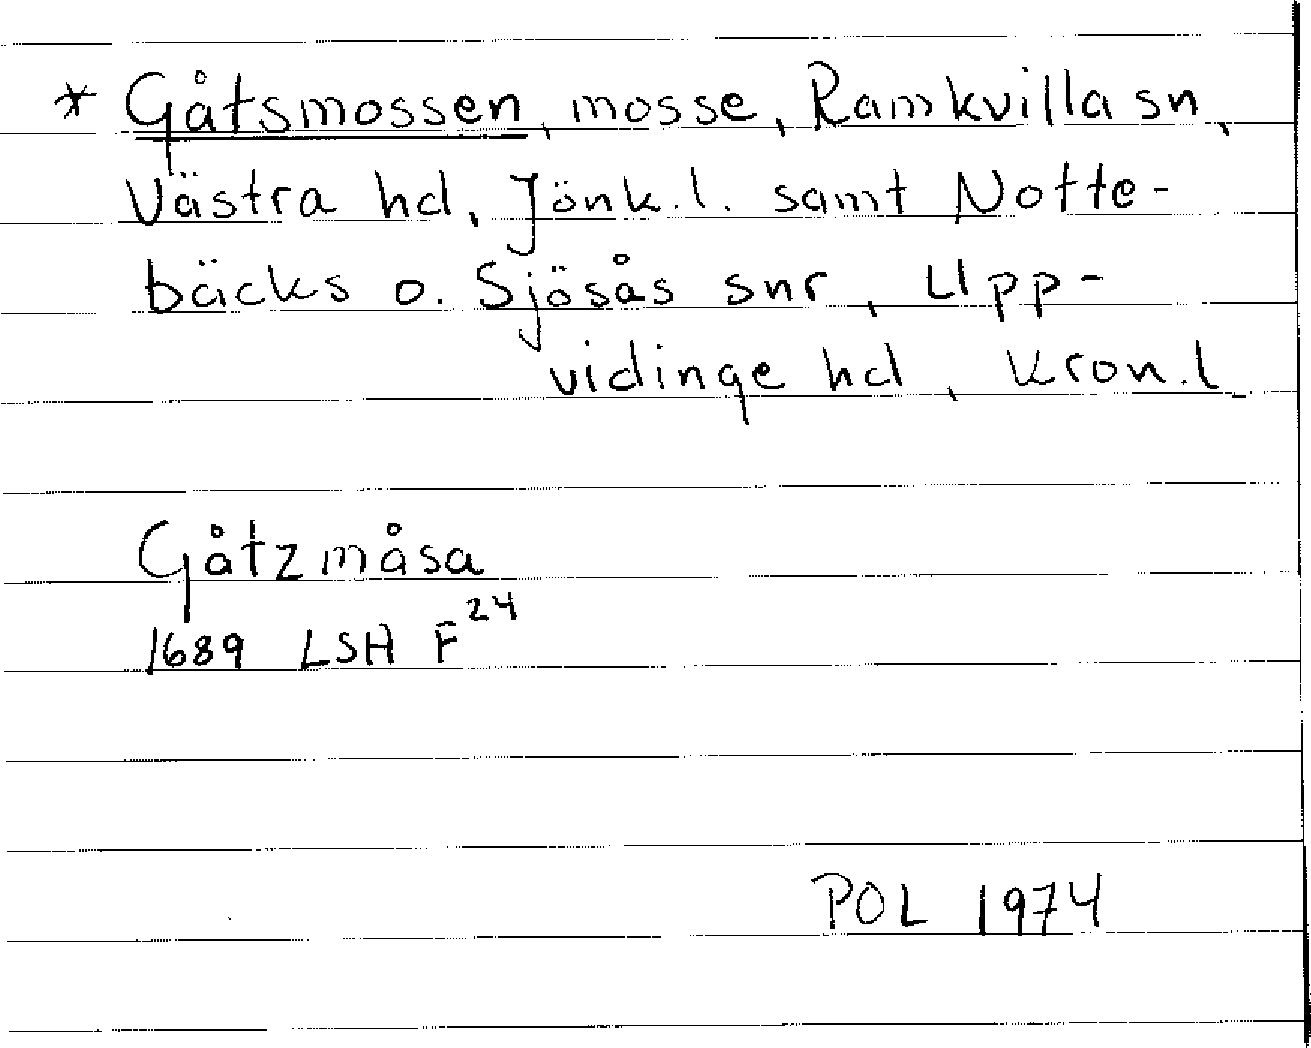 * Gåtsmossen, mosse, Ramkvilla sn,
Västra hd, Jönk.l. samt Notte-
bäcks o. Sjösås snr, Upp-
vidinge hd, Kron.l.
Gåtzmåsa
1689 LSH F24
POL 1974